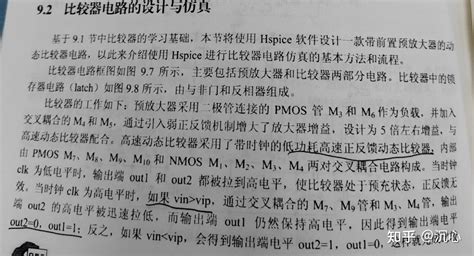 9.2 比较器电路的设计与仿真
基于 9.1 节中比较器的学习基础，本节将使用 Hspice 软件设计一款带前置预放大器的动
态比较器电路，以此来介绍使用 Hspice 进行比较器电路仿真的基本方法和流程。
比较器电路框图如图 9.7 所示，主要包括预放大器和比较器两部分电路。比较器中的锁
存器电路（latch）如图 9.8 所示，由与非门和反相器组成。
比较器的工作如下：预放大器采用二极管连接的 PMOS 管 M3 和 M6 作为负载，并加入
交叉耦合的 M4 和 M5，通过引入弱正反馈机制增大了放大器增益，设计为 5 倍左右增益，与
高速动态比较器配合。高速动态比较器采用了带时钟的低功耗高速正反馈动态比较器，内部
由 PMOS M7、M8、M9、M10 和 NMOS M1、M2、M3、M4 两对交叉耦合电路构成。当时钟
clk 为低电平时，输出端 out1 和 out2 都被拉到高电平，使比较器处于预充状态，正反馈无
效。当时钟 clk 为高电平时，如果 vin>vip，通过交叉耦合的 M7、M9管和 M3、M4 管，输
out2 的高电平被迅速拉低，而输出端 out1 仍然保持高电平，因此得到输出端电平
out2=0，out1=1；反之，如果 vin<vip，会得到输出端电平 out2=1，out1=0，这样就
知乎 @沉心